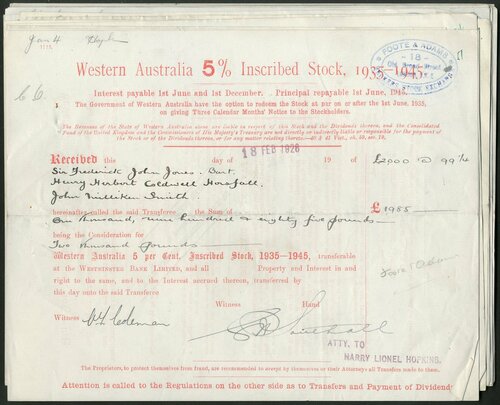 Jan 4
FOOTE & ADAMS
18
Old Broad Street
STOCK EXCHANGE
Western Australia 5% Inscribed Stock, 1935-1945.
Interest payable 1st June and 1st December. Principal repayable 1st June, 1945.
The Government of Western Australia have the option to redeem the Stock at par on or after the 1st June, 1935,
on giving Three Calendar Months' Notice to the Stockholders.
The Revenues of the State of Western Australia alone are liable in respect of this Stock and the Dividends thereon, and the Consolidated
Fund of the United Kingdom and the Commissioners of His Majesty's Treasury are not directly or indirectly liable or responsible for the payment of
the Stock or of the Dividends thereon, or for any matter relating thereto.—40 & 41 Vict. ch. 59, sec. 19.
Received this day of 18 FEB 1926 19 of £2000 @ 99 1/4
Sir Frederick John Jones. Bart.
Henry Herbert Coldwell Horsfall
John Milliken Smith.
hereinafter called the said Transferee the Sum of £ 1985
One thousand, nine hundred & eighty five pounds
being the Consideration for
Two thousand pounds
Western Australia 5 per Cent. Inscribed Stock, 1935-1945, transferable
at the WESTMINSTER BANK LIMITED, and all Property and Interest in and
right to the same, and to the Interest accrued thereon, transferred by
this day unto the said Transferee
Foote & Adams
Witness Hand
Witness Coleman
ATTY. TO
HARRY LIONEL HOPKINS.
The Proprietors, to protect themselves from fraud, are recommended to accept by themselves or their Attorneys all Transfers made to them.
Attention is called to the Regulations on the other side as to Transfers and Payment of Dividend